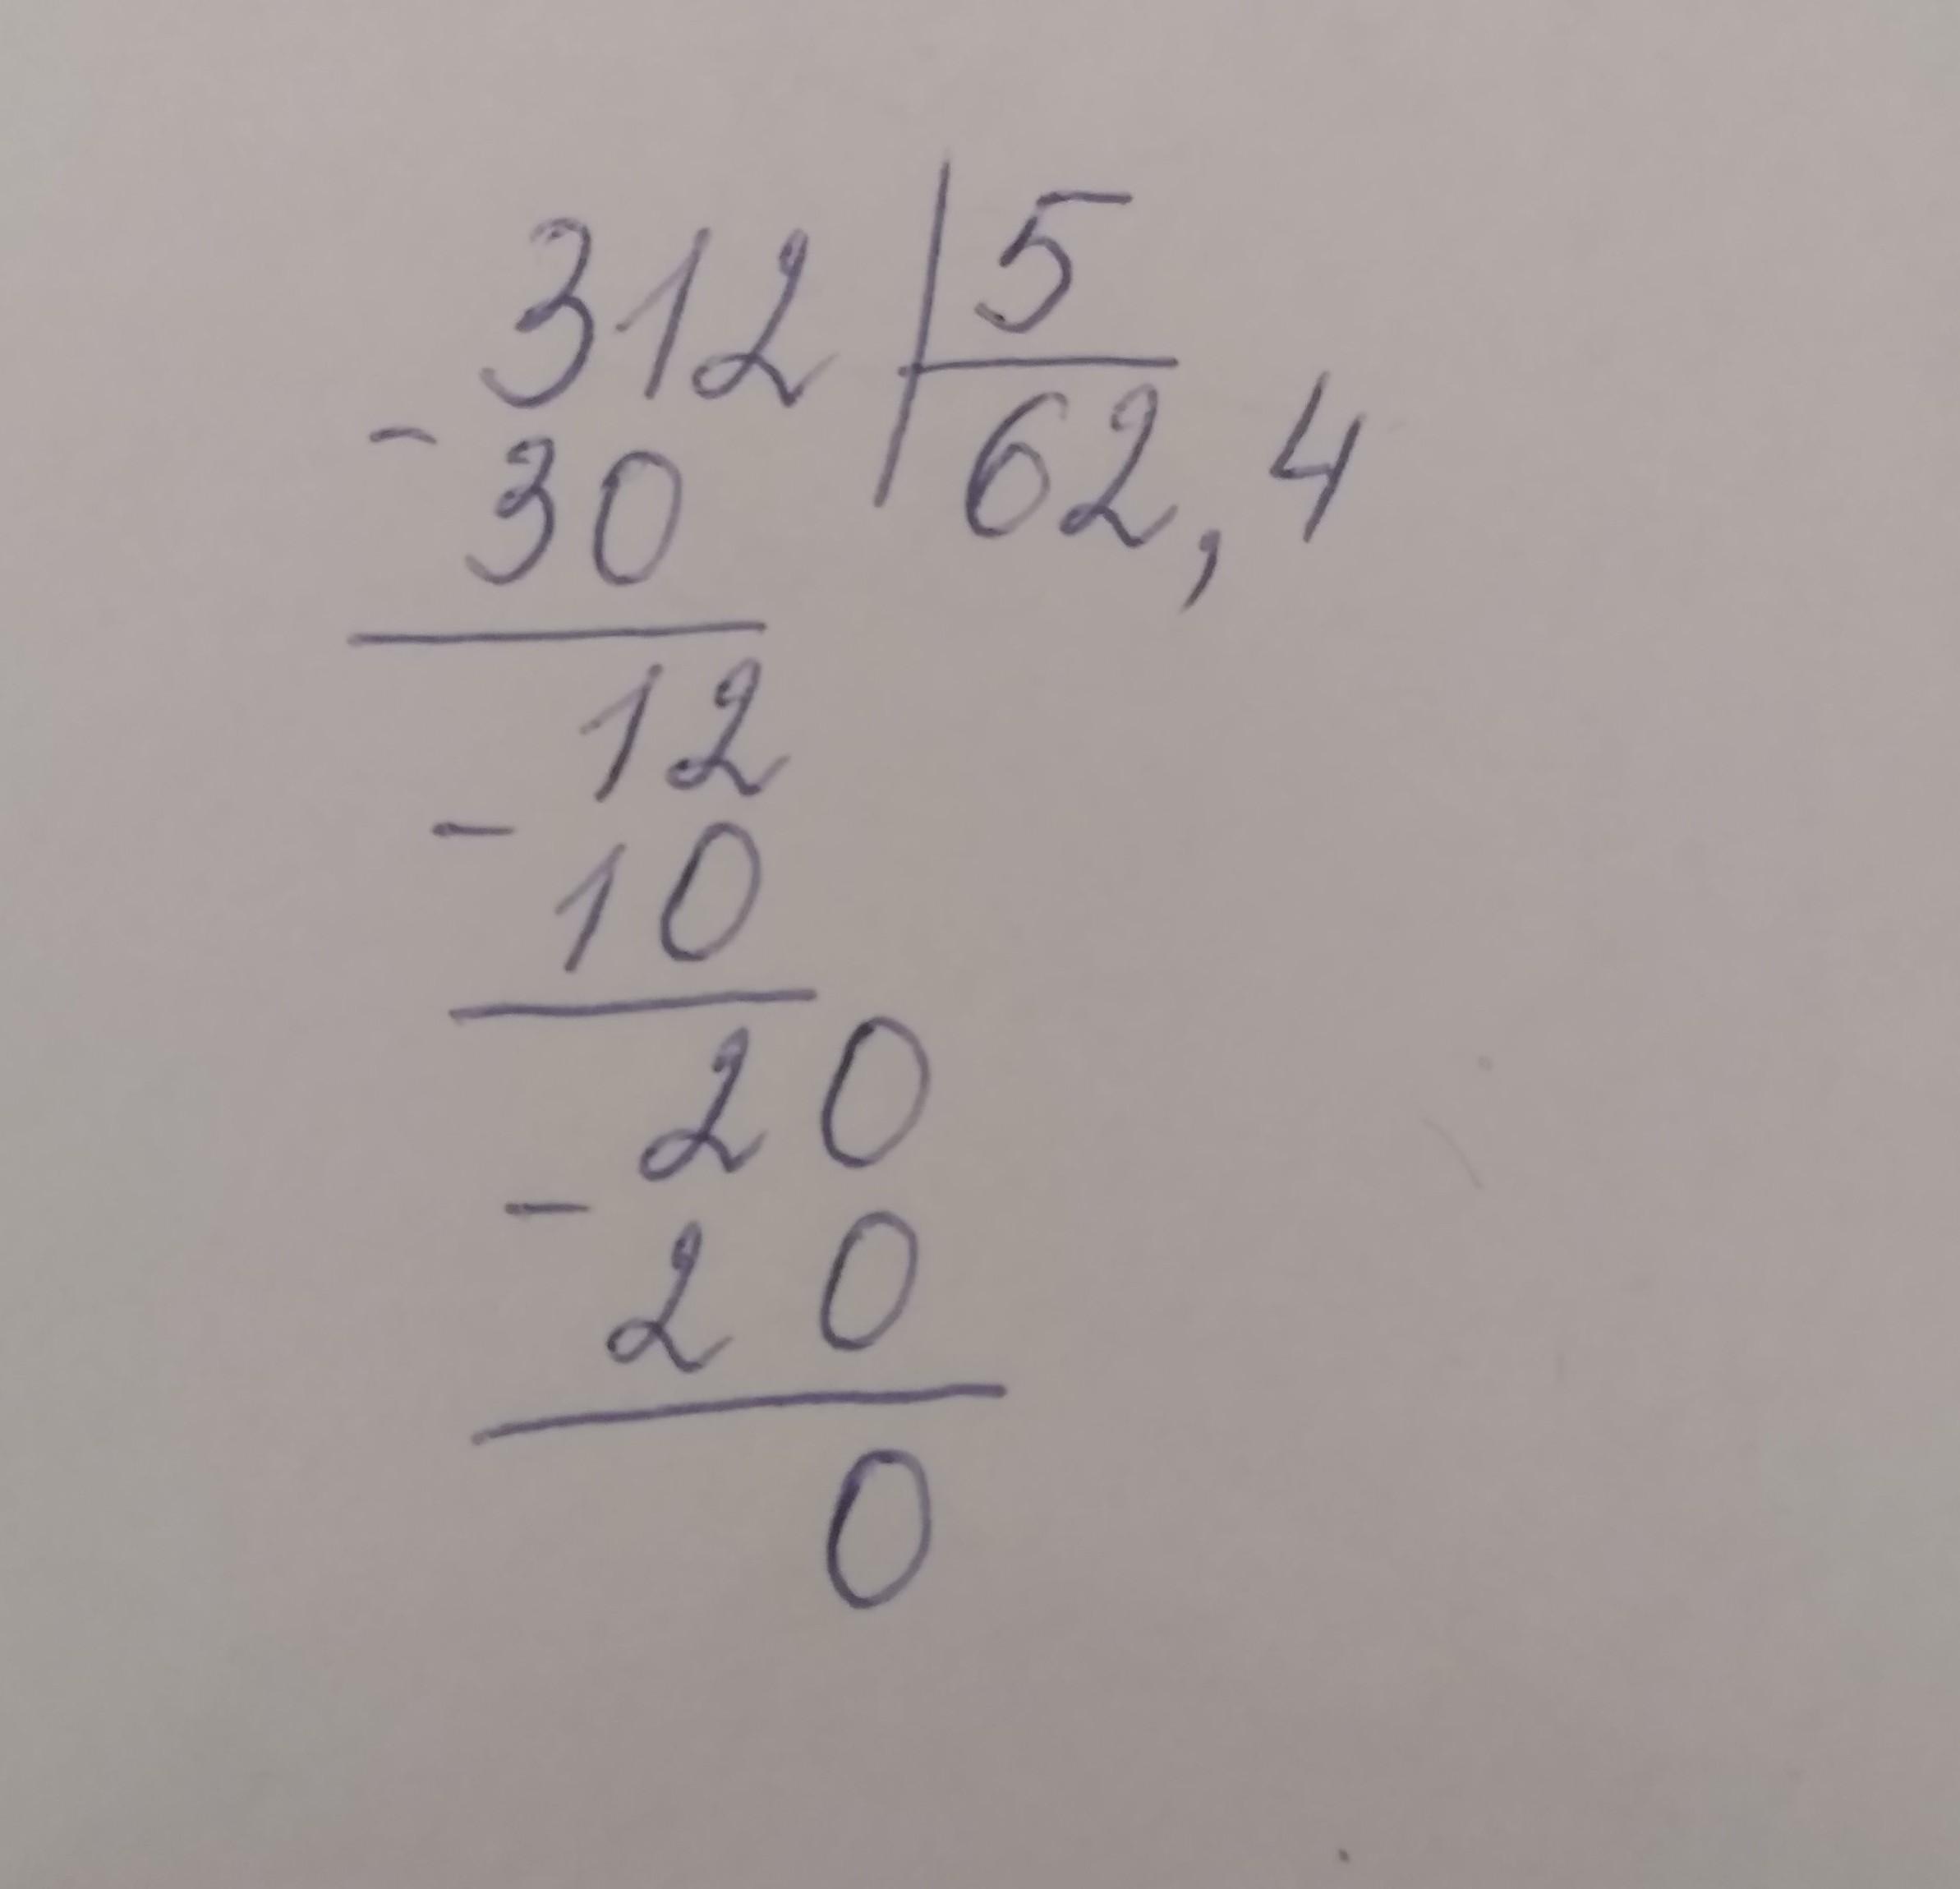 312 5
- 30 62,4
12
- 10
20
- 20
0